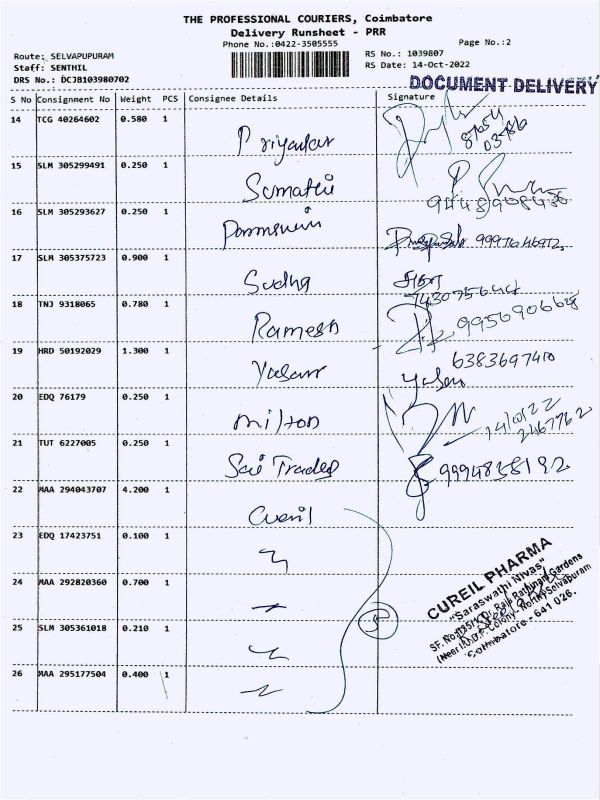 THE PROFESSIONAL COURIERS, Coimbatore
Delivery Runsheet - PRR
Phone No.:0422-3505555
Page No.:2
Route: SELVAPUPURAM
RS No.: 1039807
Staff: SENTHIL
RS Date: 14-Oct-2022
DRS No.: DCJB103980702
DOCUMENT DELIVERY
S No Consignment No Weight PCS Consignee Details Signature
14 TCG 40264602 0.580 1
15 SLM 305299491 0.250 1 Sumathi
16 SLM 305293627 0.250 1
17 SLM 305375723 0.900 1 Sudha
18 TNJ 9318065 0.780 1 Ramesh
19 HRD 50192029 1.300 1 6383697410
20 EDQ 76179 0.250 1 Milton 14/10/22
2467762
21 TUT 6227005 0.250 1 Sai Trades 9994838192
22 MAA 294043707 4.200 1 Cureil
23 EDQ 17423751 0.100 1
24 MAA 292820360 0.700 1
25 SLM 305361018 0.210 1 5
26 MAA 295177504 0.400 1
CUREIL PHARMA
"Saraswathi Nivas"
Gardens
Colony, North Selvapuram
Coimbatore - 641 026.